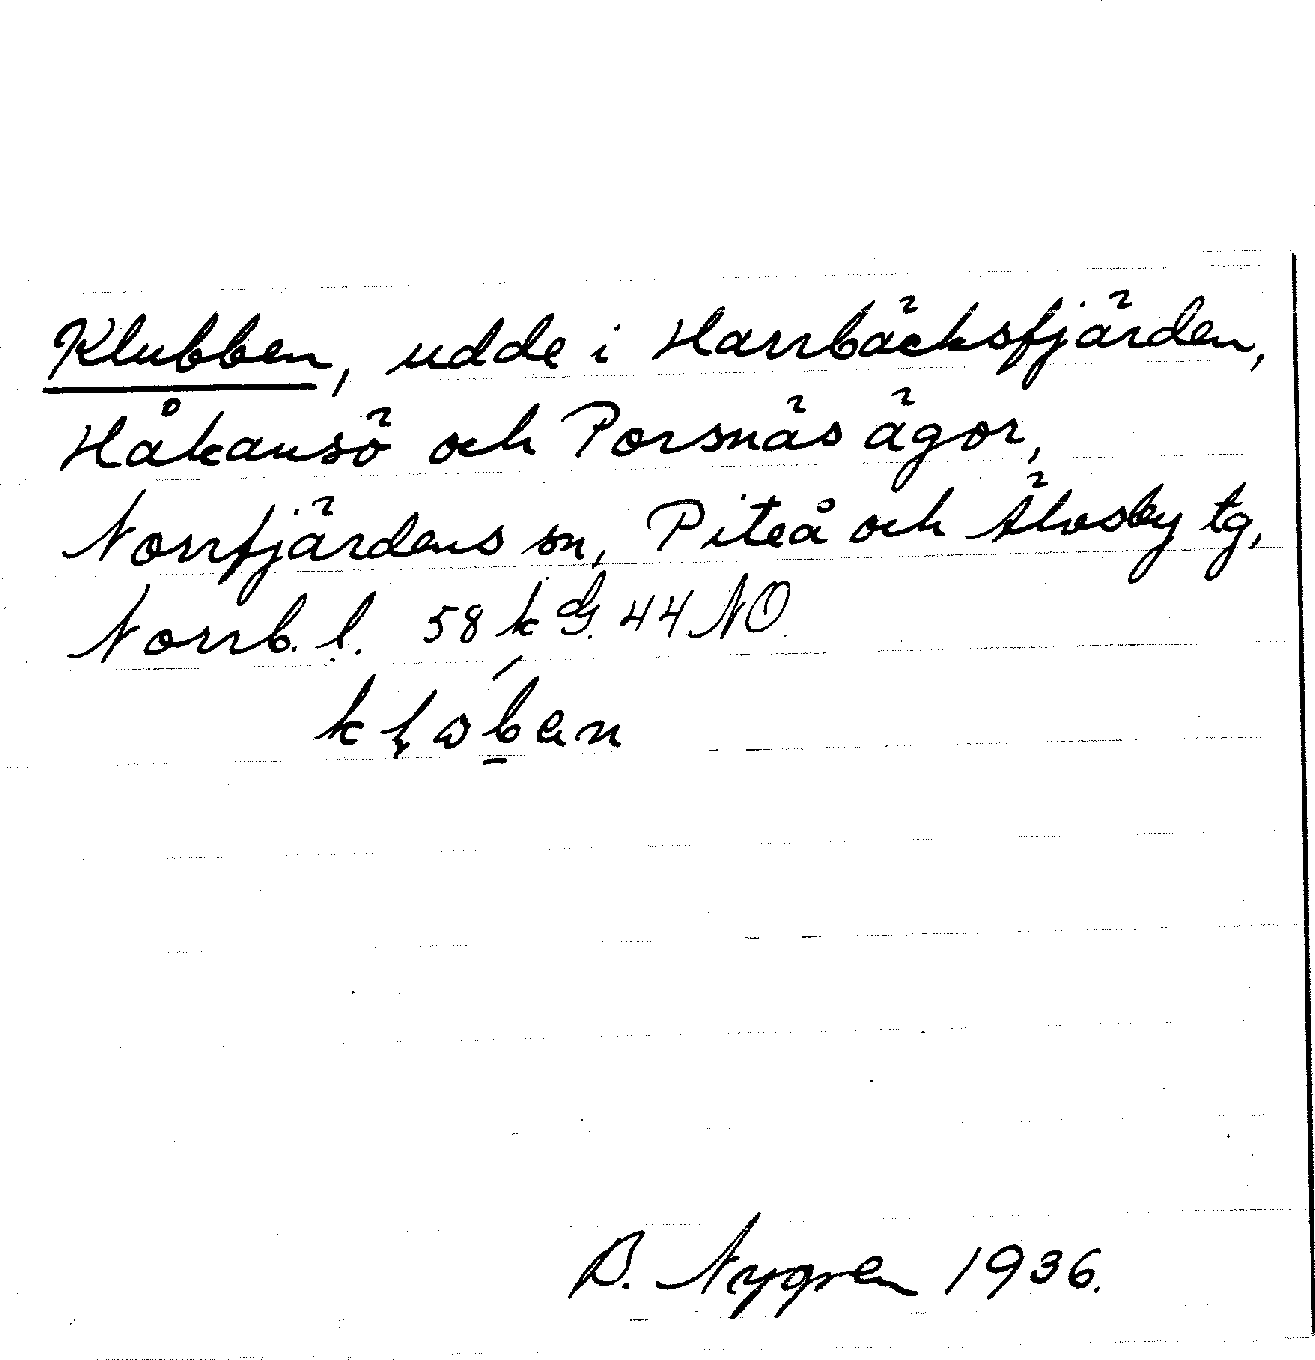 Klubben, udde i Harrbäcksfjärden,
Håkansö och Porsnäs ägor,
Norrfjärdens sn, Piteå och Älvsby tg,
Norrb. l. 58 k G. 44 NO.
B. Nygren 1936.